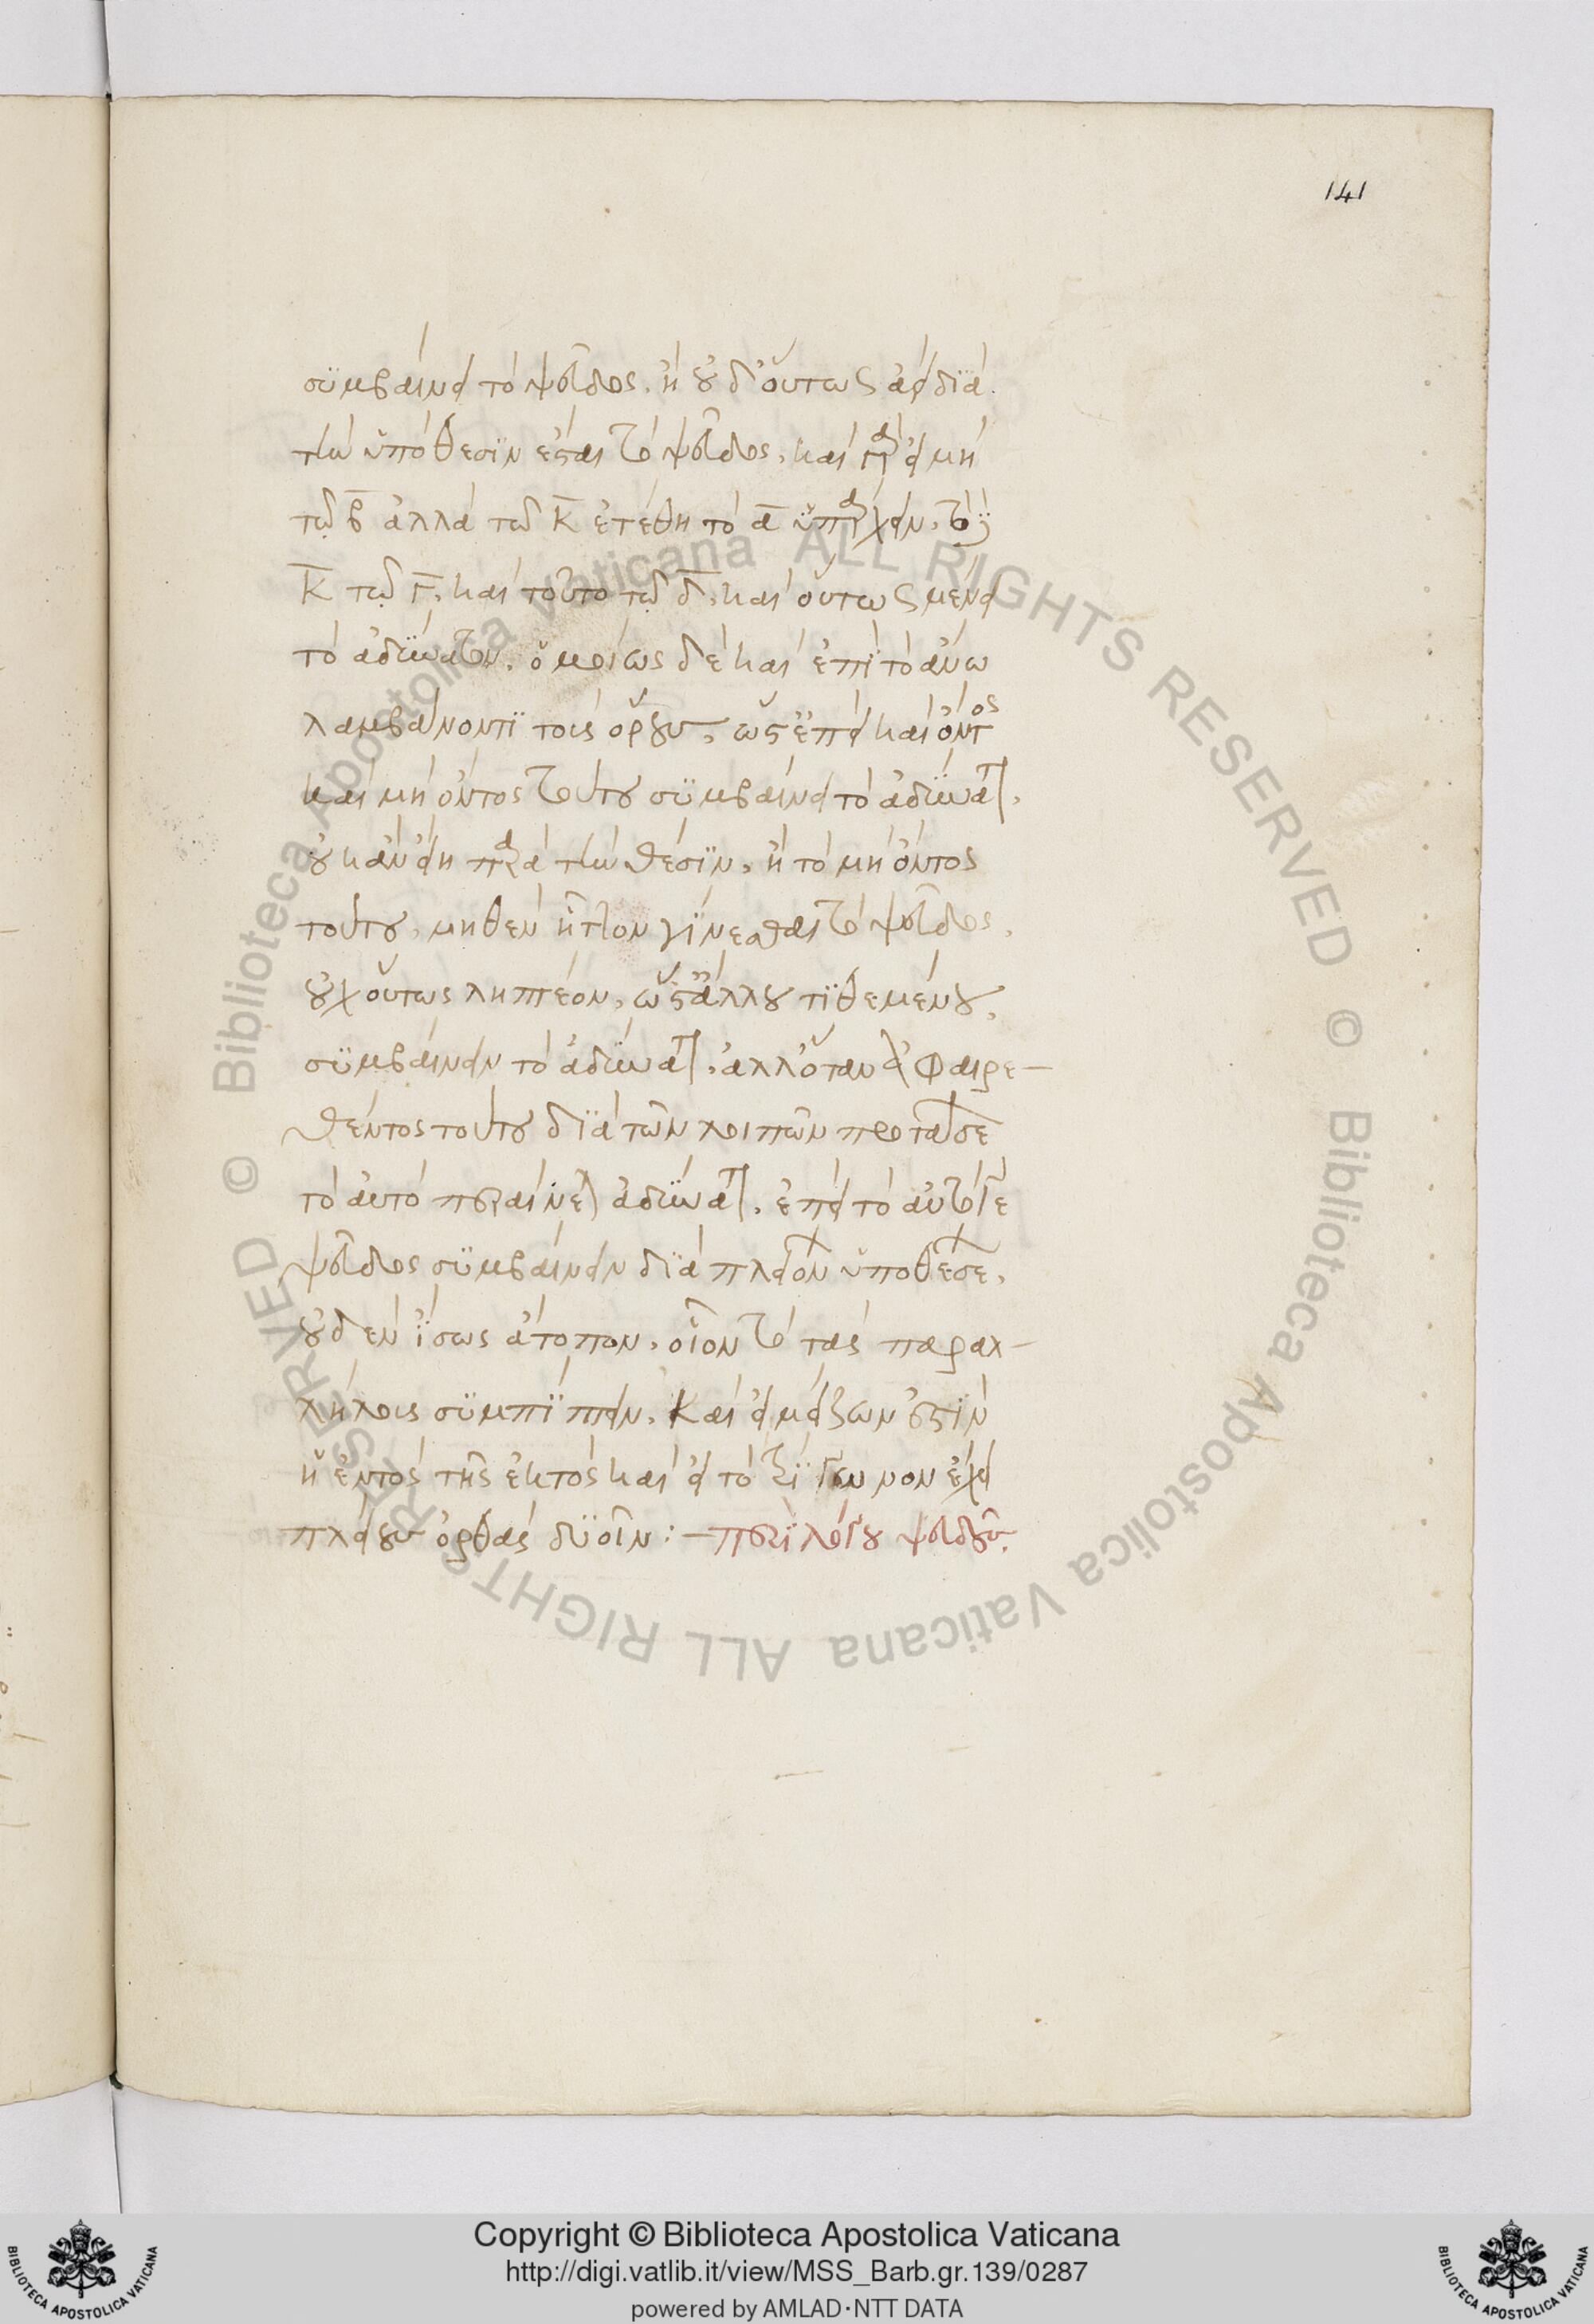 141
συμβαίνει τὸ ψεῦδος. ἢ οὐδ' οὕτως ἀεὶ διὰ
τὴν ὑπόθεσιν ἔσται τὸ ψεῦδος, καὶ γὰρ εἰ μὴ
τῷ β̅ ἀλλὰ τῷ κ̅ ἐτέθη τὸ α̅ ὑπάρχειν, τὸ δὲ
κ̅ τῷ γ̅, καὶ τοῦτο τῷ δ̅, καὶ οὕτως μένει
τὸ ἀδύνατον. ὁμοίως δὲ καὶ ἐπὶ τὸ ἄνω
λαμβάνοντι τοὺς ὅρους, ὥστ' ἐπεὶ καὶ ὄντος
καὶ μὴ ὄντος τούτου συμβαίνει τὸ ἀδύνατον,
οὐκ ἂν εἴη παρὰ τὴν θέσιν, ἢ τὸ μὴ ὄντος
τούτου, μηθὲν ἧττον γίνεσθαι τὸ ψεῦδος,
οὐχ οὕτως ληπτέον, ὥστ' ἄλλου τιθεμένου,
συμβαίνειν τὸ ἀδύνατον, ἀλλ' ὅταν ἀφαιρε-
θέντος τούτου διὰ τῶν λοιπῶν προτάσεων
τὸ αὐτὸ περαίνεται ἀδύνατον, ἐπεὶ τὸ αὐτό γε
ψεῦδος συμβαίνειν διὰ πλειόνων ὑποθέσεων,
οὐδὲν ἴσως ἄτοπον, οἷον τὸ τὰς παραλ-
λήλους συμπίπτειν, καὶ εἰ μείζων ἐστὶν
ἡ ἐντὸς τῆς ἐκτὸς καὶ εἰ τὸ τρίγωνον ἔχει
πλείους ὀρθὰς δυοῖν :– περὶ λόγου ψευδοῦς.
Copyright © Biblioteca Apostolica Vaticana
http://digi.vatlib.it/view/MSS_Barb.gr.139/0287
powered by AMLAD·NTT DATA
BIBLIOTECA APOSTOLICA VATICANA
BIBLIOTECA APOSTOLICA VATICANA
© Biblioteca Apostolica Vaticana ALL RIGHTS RESERVED © Biblioteca Apostolica Vaticana ALL RIGHTS RESERVED